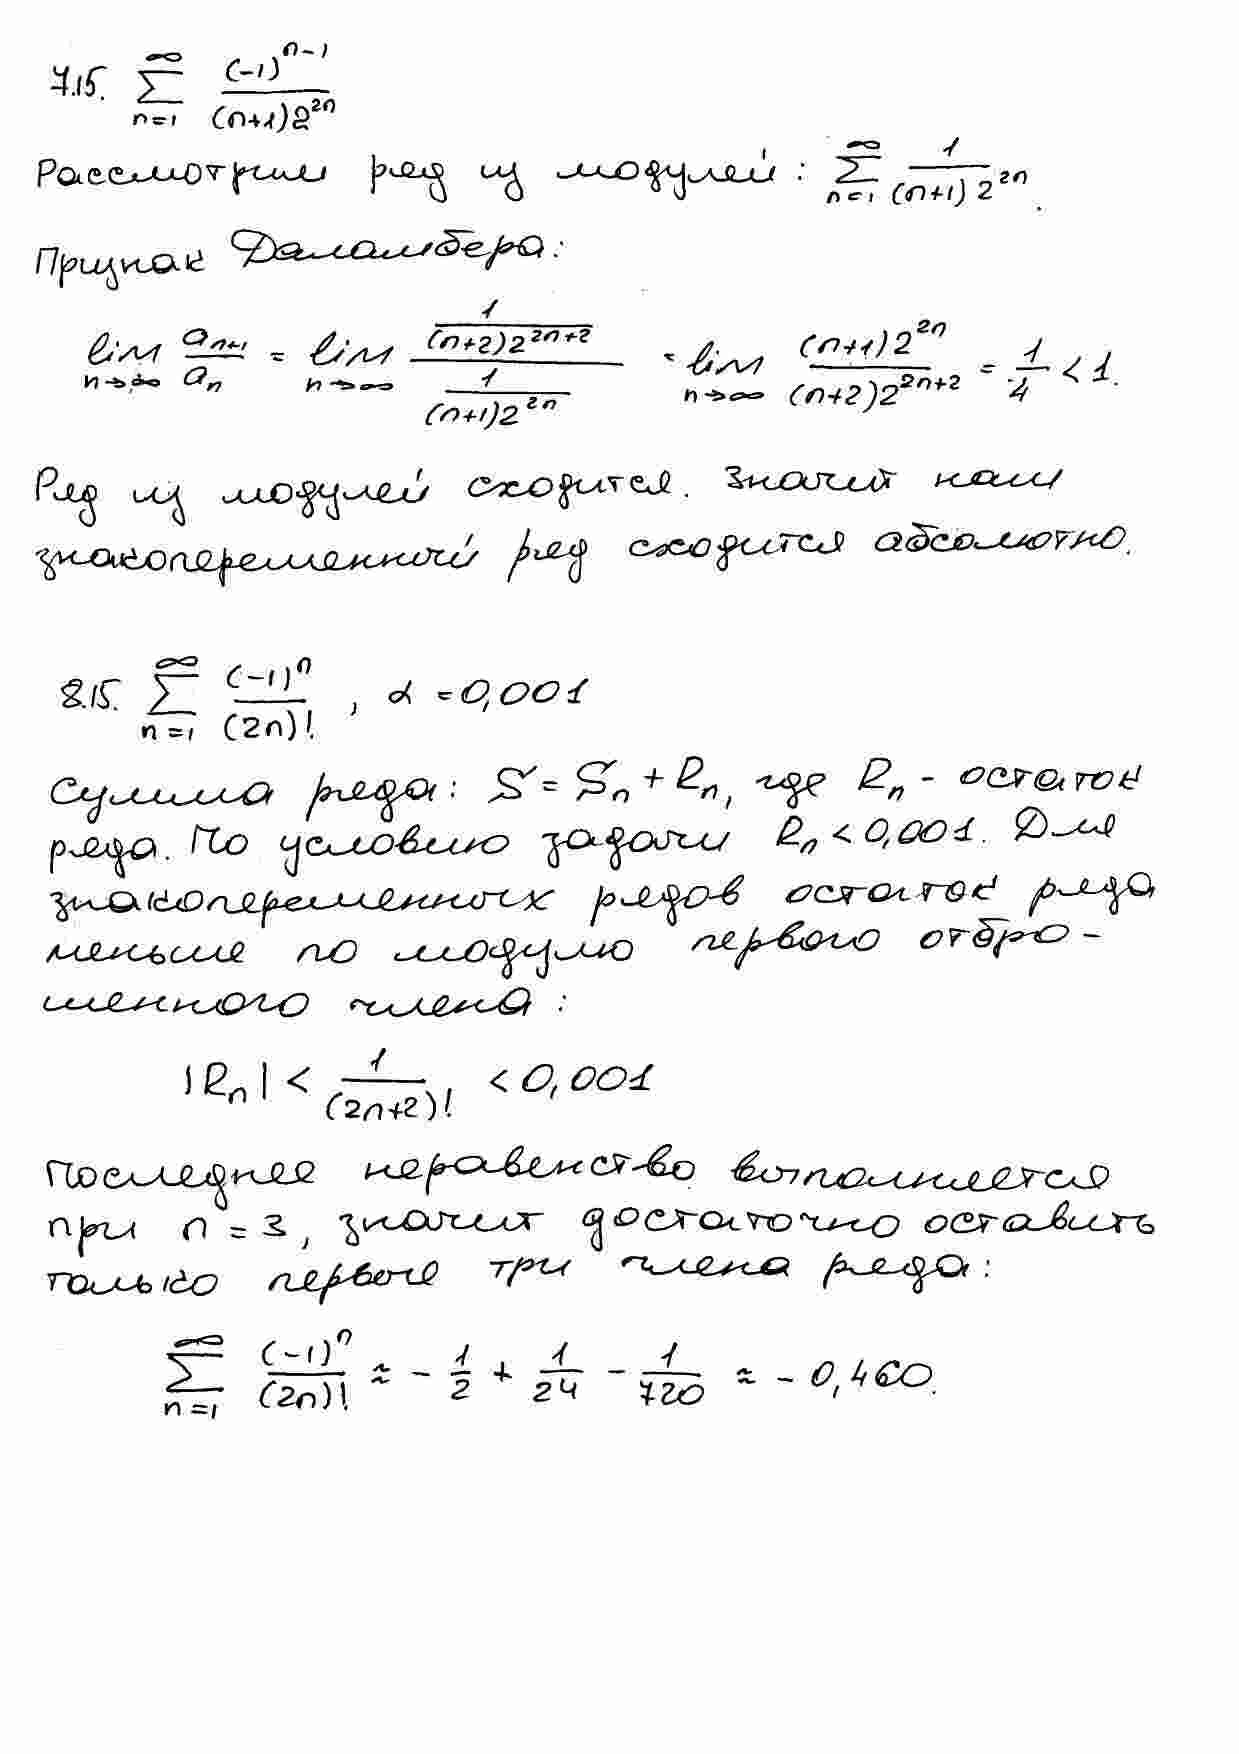 7.15. \sum_{n=1}^{\infty} \frac{(-1)^{n-1}}{(n+1)2^{2n}}
Рассмотрим ряд из модулей: \sum_{n=1}^{\infty} \frac{1}{(n+1)2^{2n}}.
Признак Даламбера:
\lim_{n→∞} \frac{a_{n+1}}{a_n} = \lim_{n→∞} \frac{\frac{1}{(n+2)2^{2n+2}}}{\frac{1}{(n+1)2^{2n}}} = \lim_{n→∞} \frac{(n+1)2^{2n}}{(n+2)2^{2n+2}} = \frac{1}{4} < 1.
Ряд из модулей сходится. Значит наш
знакопеременный ряд сходится абсолютно.
8.15. \sum_{n=1}^{\infty} \frac{(-1)^n}{(2n)!}, α = 0,001
Сумма ряда: S = S_n + R_n, где R_n - остаток
ряда. По условию задачи R_n < 0,001. Для
знакопеременных рядов остаток ряда
меньше по модулю первого отбро-
шенного члена:
|R_n| < \frac{1}{(2n+2)!} < 0,001
Последнее неравенство выполняется
при n = 3, значит достаточно оставить
только первые три члена ряда:
\sum_{n=1}^{\infty} \frac{(-1)^n}{(2n)!} ≈ - \frac{1}{2} + \frac{1}{24} - \frac{1}{720} ≈ - 0,460.